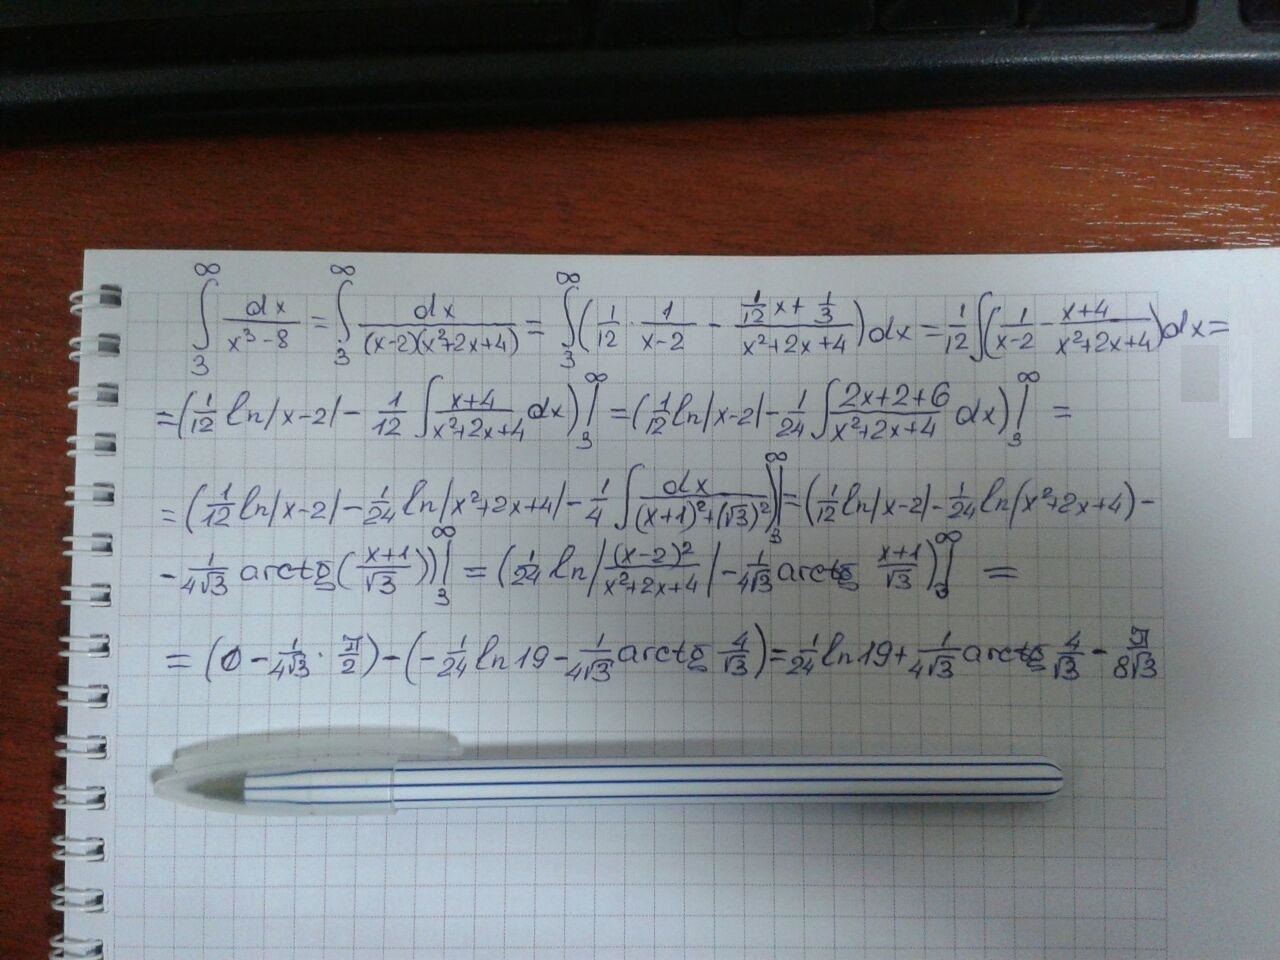 ∫₃^∞ dx/(x³-8) = ∫₃^∞ dx/((x-2)(x²+2x+4)) = ∫₃^∞ (1/12 · 1/(x-2) - (1/12 x + 1/3)/(x²+2x+4)) dx = 1/12 ∫(1/(x-2) - (x+4)/(x²+2x+4)) dx =
= (1/12 ln|x-2| - 1/12 ∫ (x+4)/(x²+2x+4) dx)|₃^∞ = (1/12 ln|x-2| - 1/24 ∫ (2x+2+6)/(x²+2x+4) dx)|₃^∞ =
= (1/12 ln|x-2| - 1/24 ln|x²+2x+4| - 1/4 ∫ dx/((x+1)²+(√3)²))|₃^∞ = (1/12 ln|x-2| - 1/24 ln(x²+2x+4) -
- 1/(4√3) arctg((x+1)/√3))|₃^∞ = (1/24 ln|(x-2)²/(x²+2x+4)| - 1/(4√3) arctg (x+1)/√3)|₃^∞ =
= (0 - 1/(4√3) · π/2) - (-1/24 ln19 - 1/(4√3) arctg 4/√3) = 1/24 ln19 + 1/(4√3) arctg 4/√3 - π/(8√3)